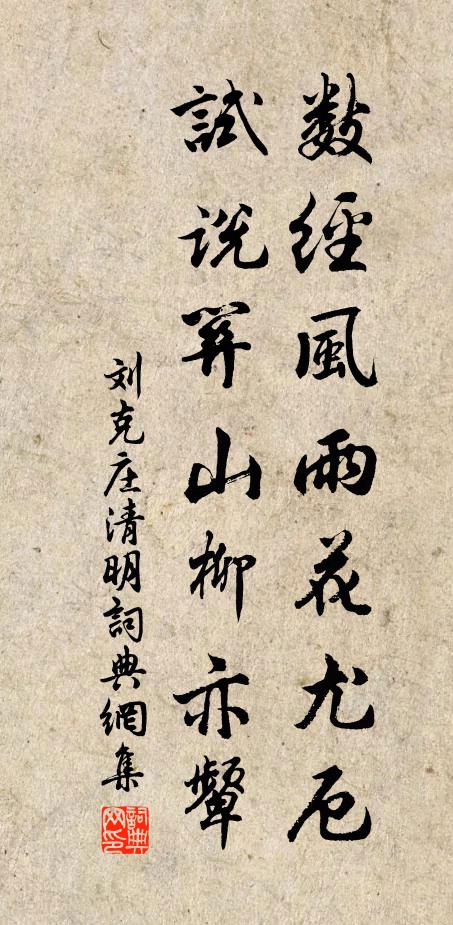 數經風雨花尤厄
試說關山柳亦顰
刘克庄清明詞典網集
詞典網印